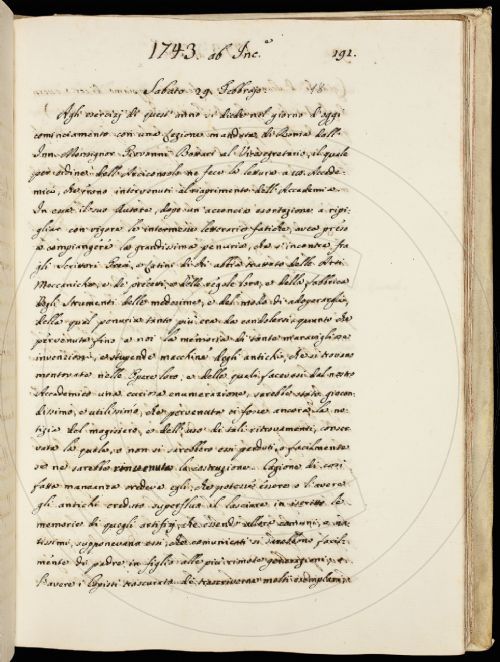 1743 ab Inc.º 191.
Sabato 29. Febbrajo. 18.
Agli esercizj di quest'anno si diede nel giorno d'oggi
cominciamento con una Lezione mandata di Roma dall'
Innº Monsignor Giovanni Bottari al Vicesegretario, il quale
per ordine dell'Arciconsolo ne fece la lettura a 10. Accade-
mici, che furono intervenuti al riaprimento dell'Accademia.
In essa il suo Autore, dopo un acconcia esortazione a ripi-
gliar con vigore le intermesse letterarie fatiche, avea preso
a compiangere la grandissima penuria, che s'incontra fra
gli Scrittori Greci, e Latini di chi abbia trattato delle Arti
Meccaniche, e de' precetti, e delle regole loro, e della fabbrica
degli Strumenti delle medesime, e del modo di adoperargli,
della qual penuria tanto più era da condolersi, quanto che
pervenuta fino a noi la memoria di tante maravigliose
invenzioni, e stupende macchine degli antichi, che si trovano
mentovate nelle Opere loro, e delle quali facevasi dal nostro
Accademico una curiosa enumerazione, sarebbe stata giocon-
dissimo, e utilissimo, che pervenuta ci fosse ancora la no-
tizia del magistero, e dell'uso di tali ritrovamenti, conser-
vata la quale, o non si sarebbero essi perduti, o facilmente
se ne sarebbe rinvenuta la costruzione. Cagione di così
fatta mancanza credeva egli, che potesse essere o l'avere
gli antichi creduto superfluo il lasciare in iscritto le
memorie di quegli artifizj, che essendo allora comuni, e no-
tissimi, supponevano essi, che comunicati si sarebbono facil-
mente di padre in figlio alle più rimote generazioni, o
l'avere i Copisti trascurato di trascriverne molti esemplari,